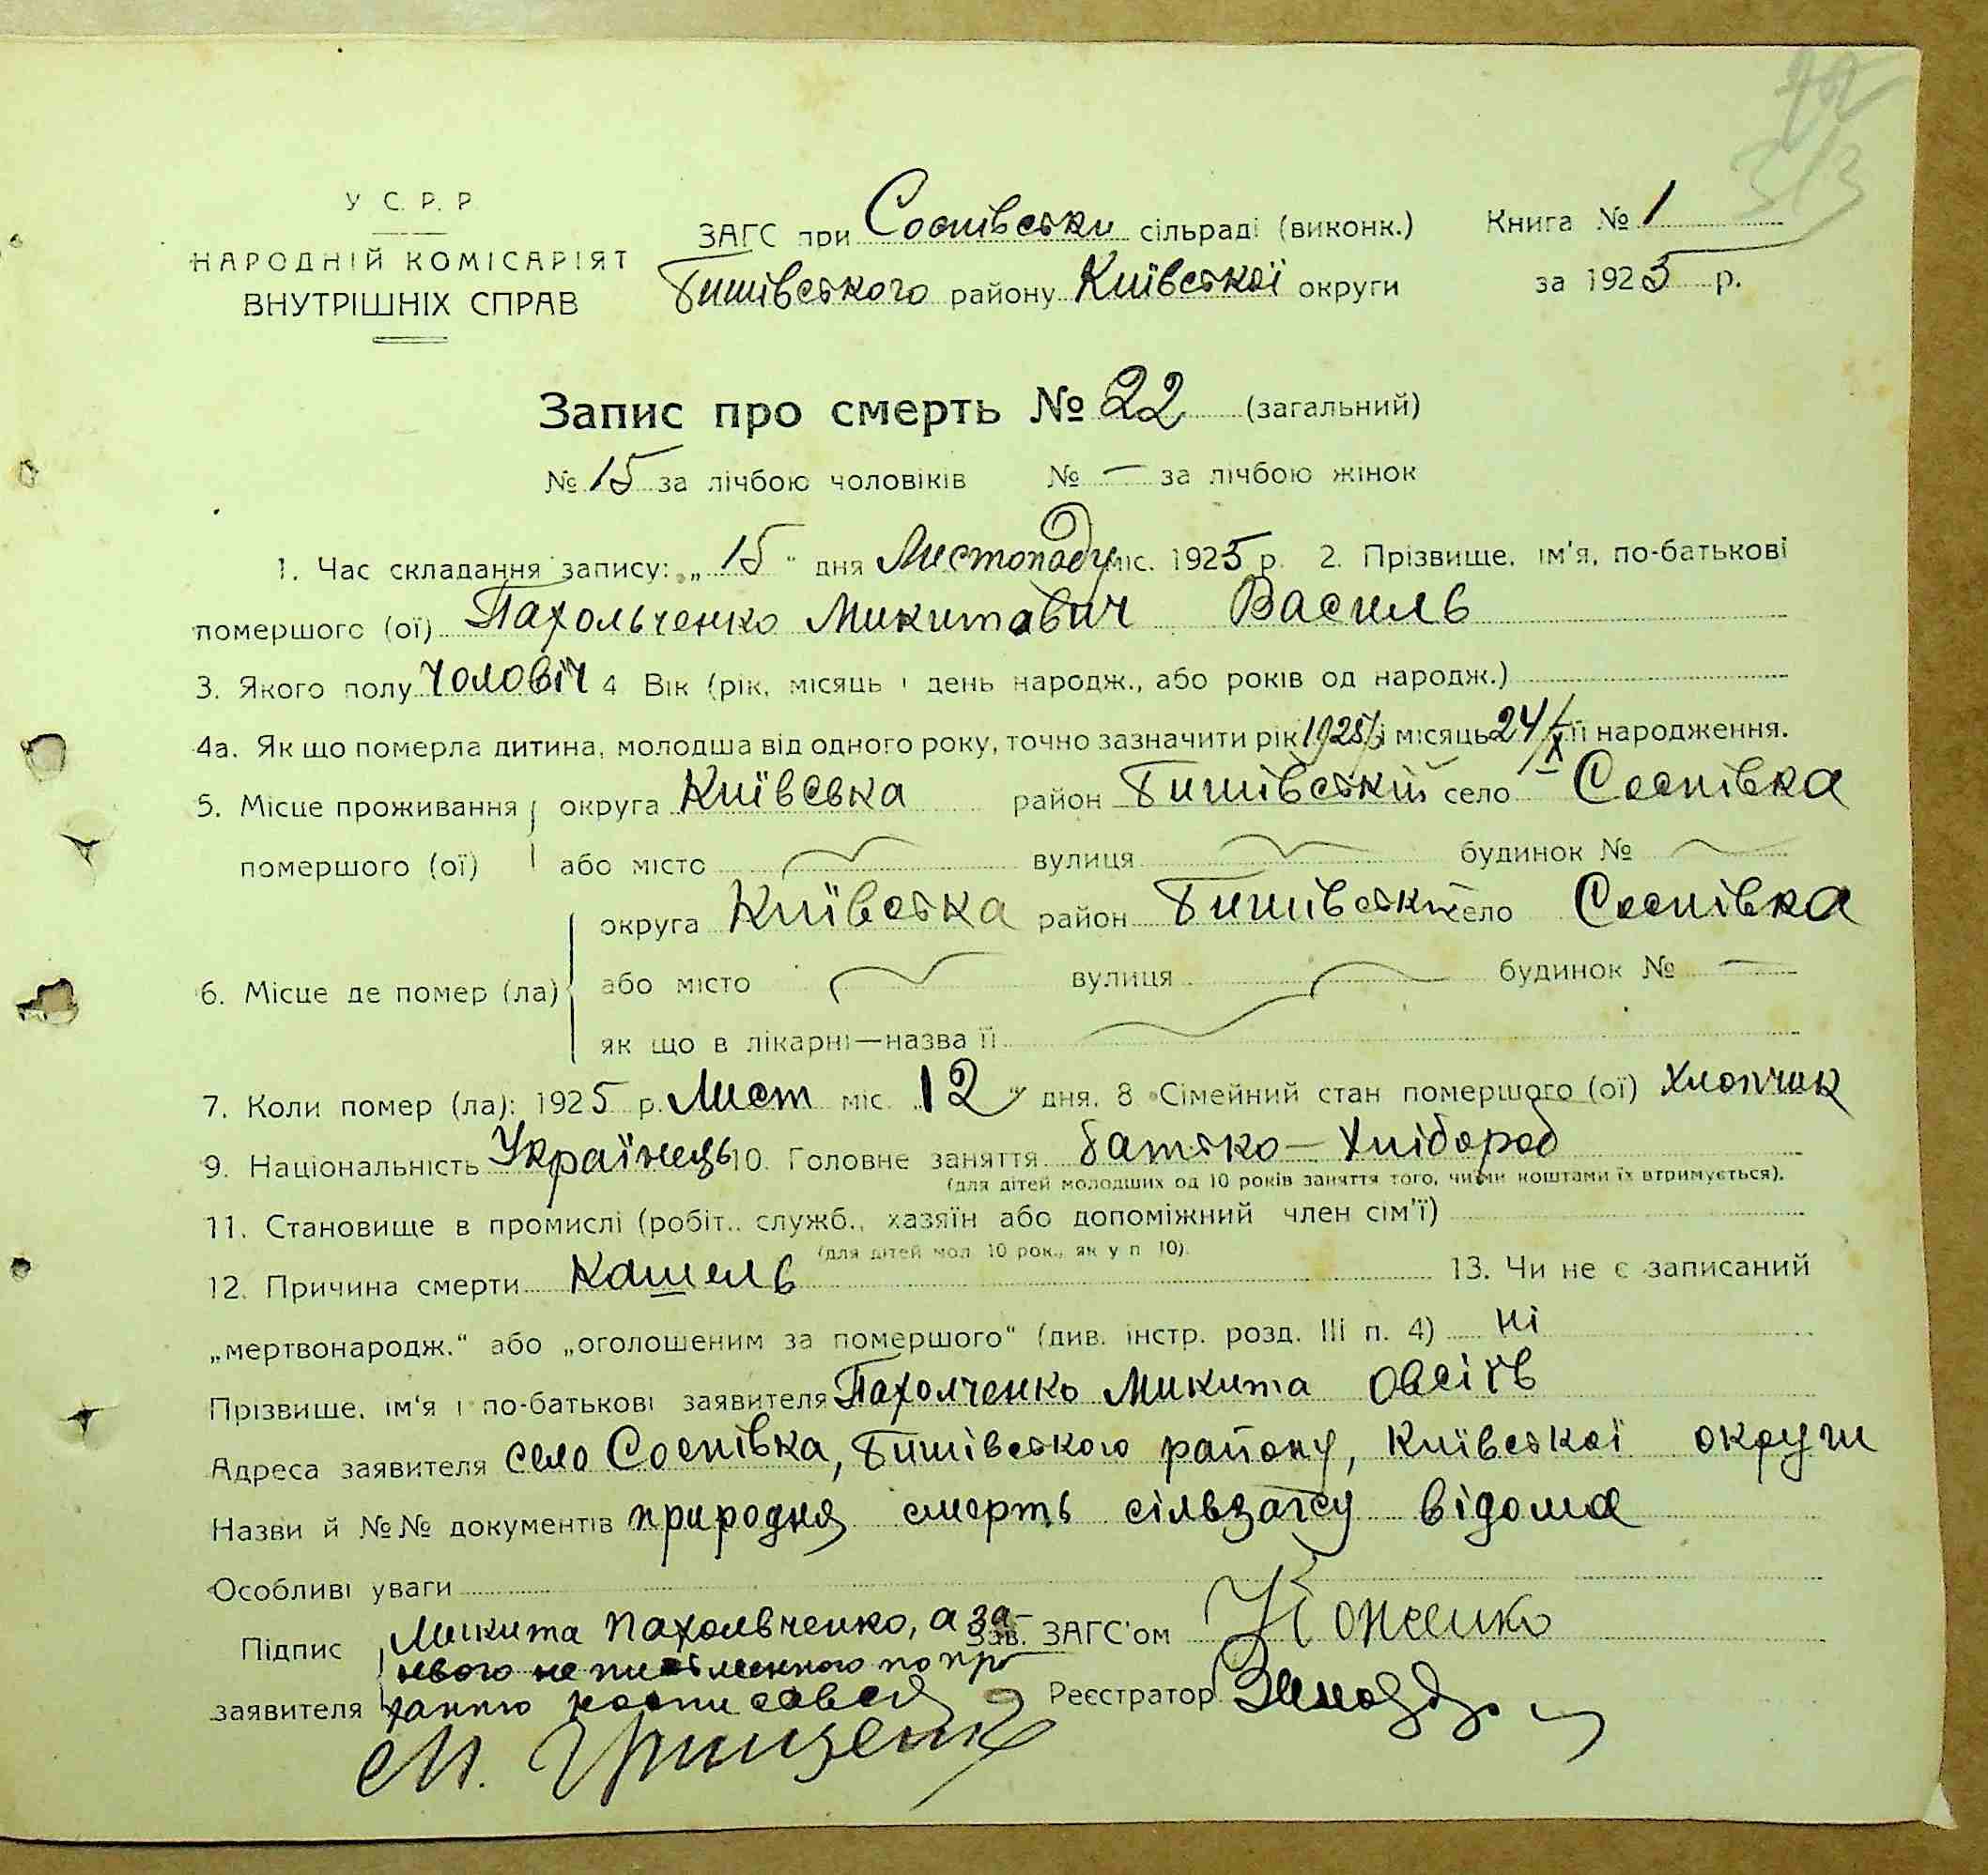 313
У С. Р. Р
НАРОДНІЙ КОМІСАРІЯТ
ВНУТРІШНІХ СПРАВ
ЗАГС при Соснівськи сільраді (виконк.)
Книга № 1
Бишівського району Київської округи
за 1925 р.
Запис про смерть № 22 (загальний)
№ 15 за лічбою чоловіків № — за лічбою жінок
1. Час складання запису: „ 15 " дня Листопаду міс. 1925 р. 2. Прізвище, ім'я, по-батькові
помершого (ої) Пахольченко Микитович Василь
3. Якого полу чоловіч 4 Вік (рік, місяць і день народж., або років од народж.)
4а. Як що померла дитина, молодша від одного року, точно зазначити рік 1925 і місяць 24/X її народження.
5. Місце проживання округа Київська район Бишівський село Соснівка
помершого (ої) або місто вулиця будинок №
округа Київська район Бишівський село Соснівка
6. Місце де помер (ла) або місто вулиця будинок № —
як що в лікарні—назва її
7. Коли помер (ла): 1925 р. Лист міс. 12 дня. 8 Сімейний стан помершого (ої) хлопчик
9. Національність Українець 10. Головне заняття батько — хлібороб
(для дітей молодших од 10 років заняття того, чиїми коштами їх втримується).
11. Становище в промислі (робіт., служб., хазяїн або допоміжний член сім'ї)
(для дітей мол. 10 рок., як у п 10).
12. Причина смерти Кашель 13. Чи не є записаний
„мертвонародж." або „оголошеним за помершого" (див. інстр. розд. III п. 4) ні
Прізвище, ім'я і по-батькові заявителя Пахолченко Микита Овсіїв
Адреса заявителя село Соснівка, Бишівського району, Київської округи
Назви й №№ документів природня смерть сільзагсу відома
Особливі уваги
Підпис Микита Пахольченко, а за-
Зав. ЗАГС'ом
нього неписьменного по про
заявителя ханню росписався Реєстратор
М. Грищенко